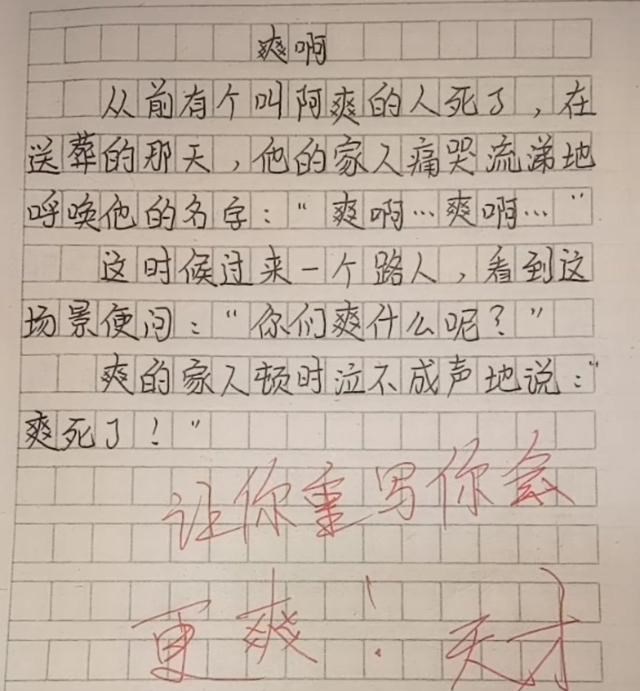 爽啊
从前有个叫阿爽的人死了，在
送葬的那天，他的家人痛哭流涕地
呼唤他的名字：“爽啊…爽啊…”
这时候过来一个路人，看到这
场景便问：“你们爽什么呢？”
爽的家人顿时泣不成声地说：“
爽死了！”
让你重写你会
更爽！天才